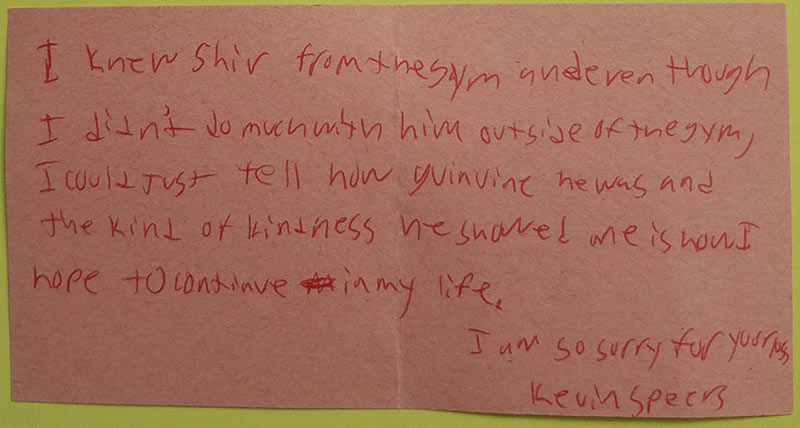 I knew Shiv from the gym and even though
I didn't do much with him outside of the gym,
I could just tell how guinuine he was and
the kind of kindness he showed me is how I
hope to continue in my life.
I am so sorry for your loss
Kevin Speers